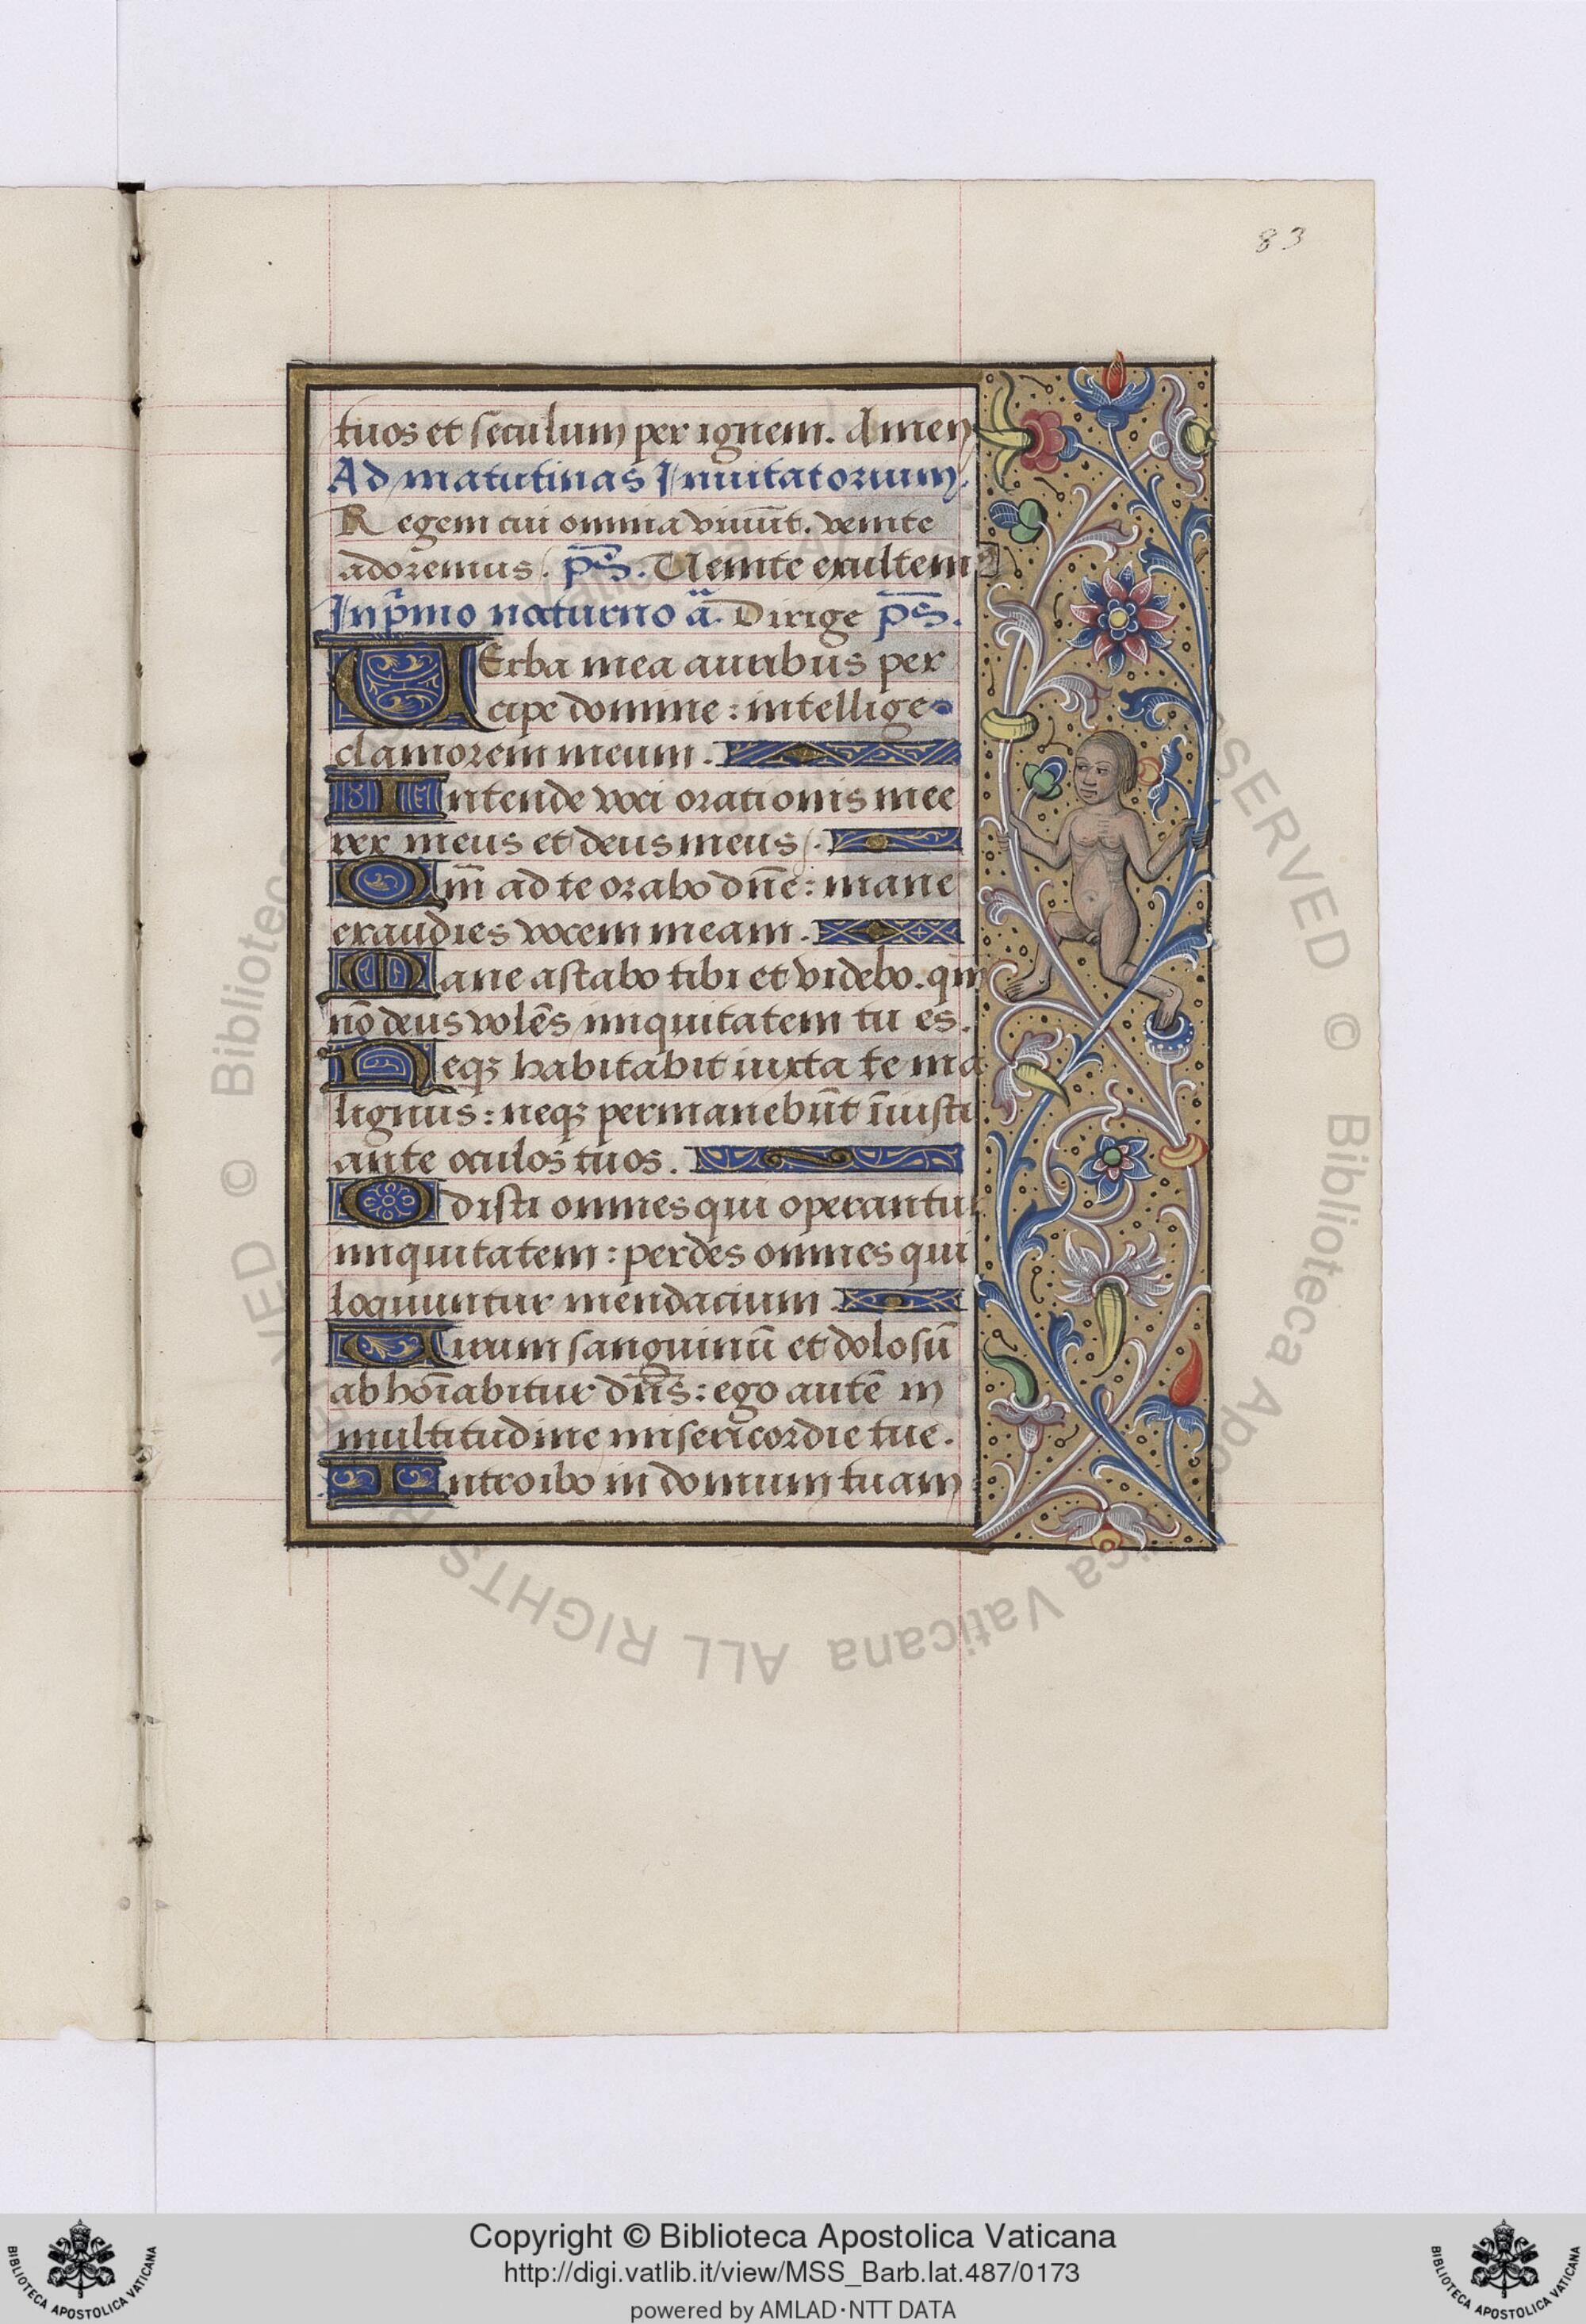 83
tuos et seculum per ignem. Amen
Ad matutinas Inuitatorium.
Regem cui omnia viuūt. venite
adoremus. ps̄. Uenite exultem9
In pͥmo nocturno ā. Dirige ps̄.
UErba mea auribus per
cipe domine : intellige
clamorem meum.
Intende voci orationis mee
rex meus et deus meus.
Qm̄ ad te orabo dn̄e : mane
exaudies vocem meam.
Mane astabo tibi et videbo. qm
nō deus volēs iniquitatem tu es.
Neqꝫ habitabit iuxta te ma
lignus : neqꝫ permanebūt īiusti
ante oculos tuos.
Odisti omnes qui operantur
iniquitatem : perdes omnes qui
loquuntur mendacium
Uirum sanguinū et dolosū
abhoīabitur dn̄s : ego autē in
multitudine misericordie tue.
Introibo in domum tuam
© Biblioteca Apostolica Vaticana ALL RIGHTS RESERVED
Copyright © Biblioteca Apostolica Vaticana
http://digi.vatlib.it/view/MSS_Barb.lat.487/0173
powered by AMLAD·NTT DATA
BIBLIOTECA APOSTOLICA VATICANA
BIBLIOTECA APOSTOLICA VATICANA